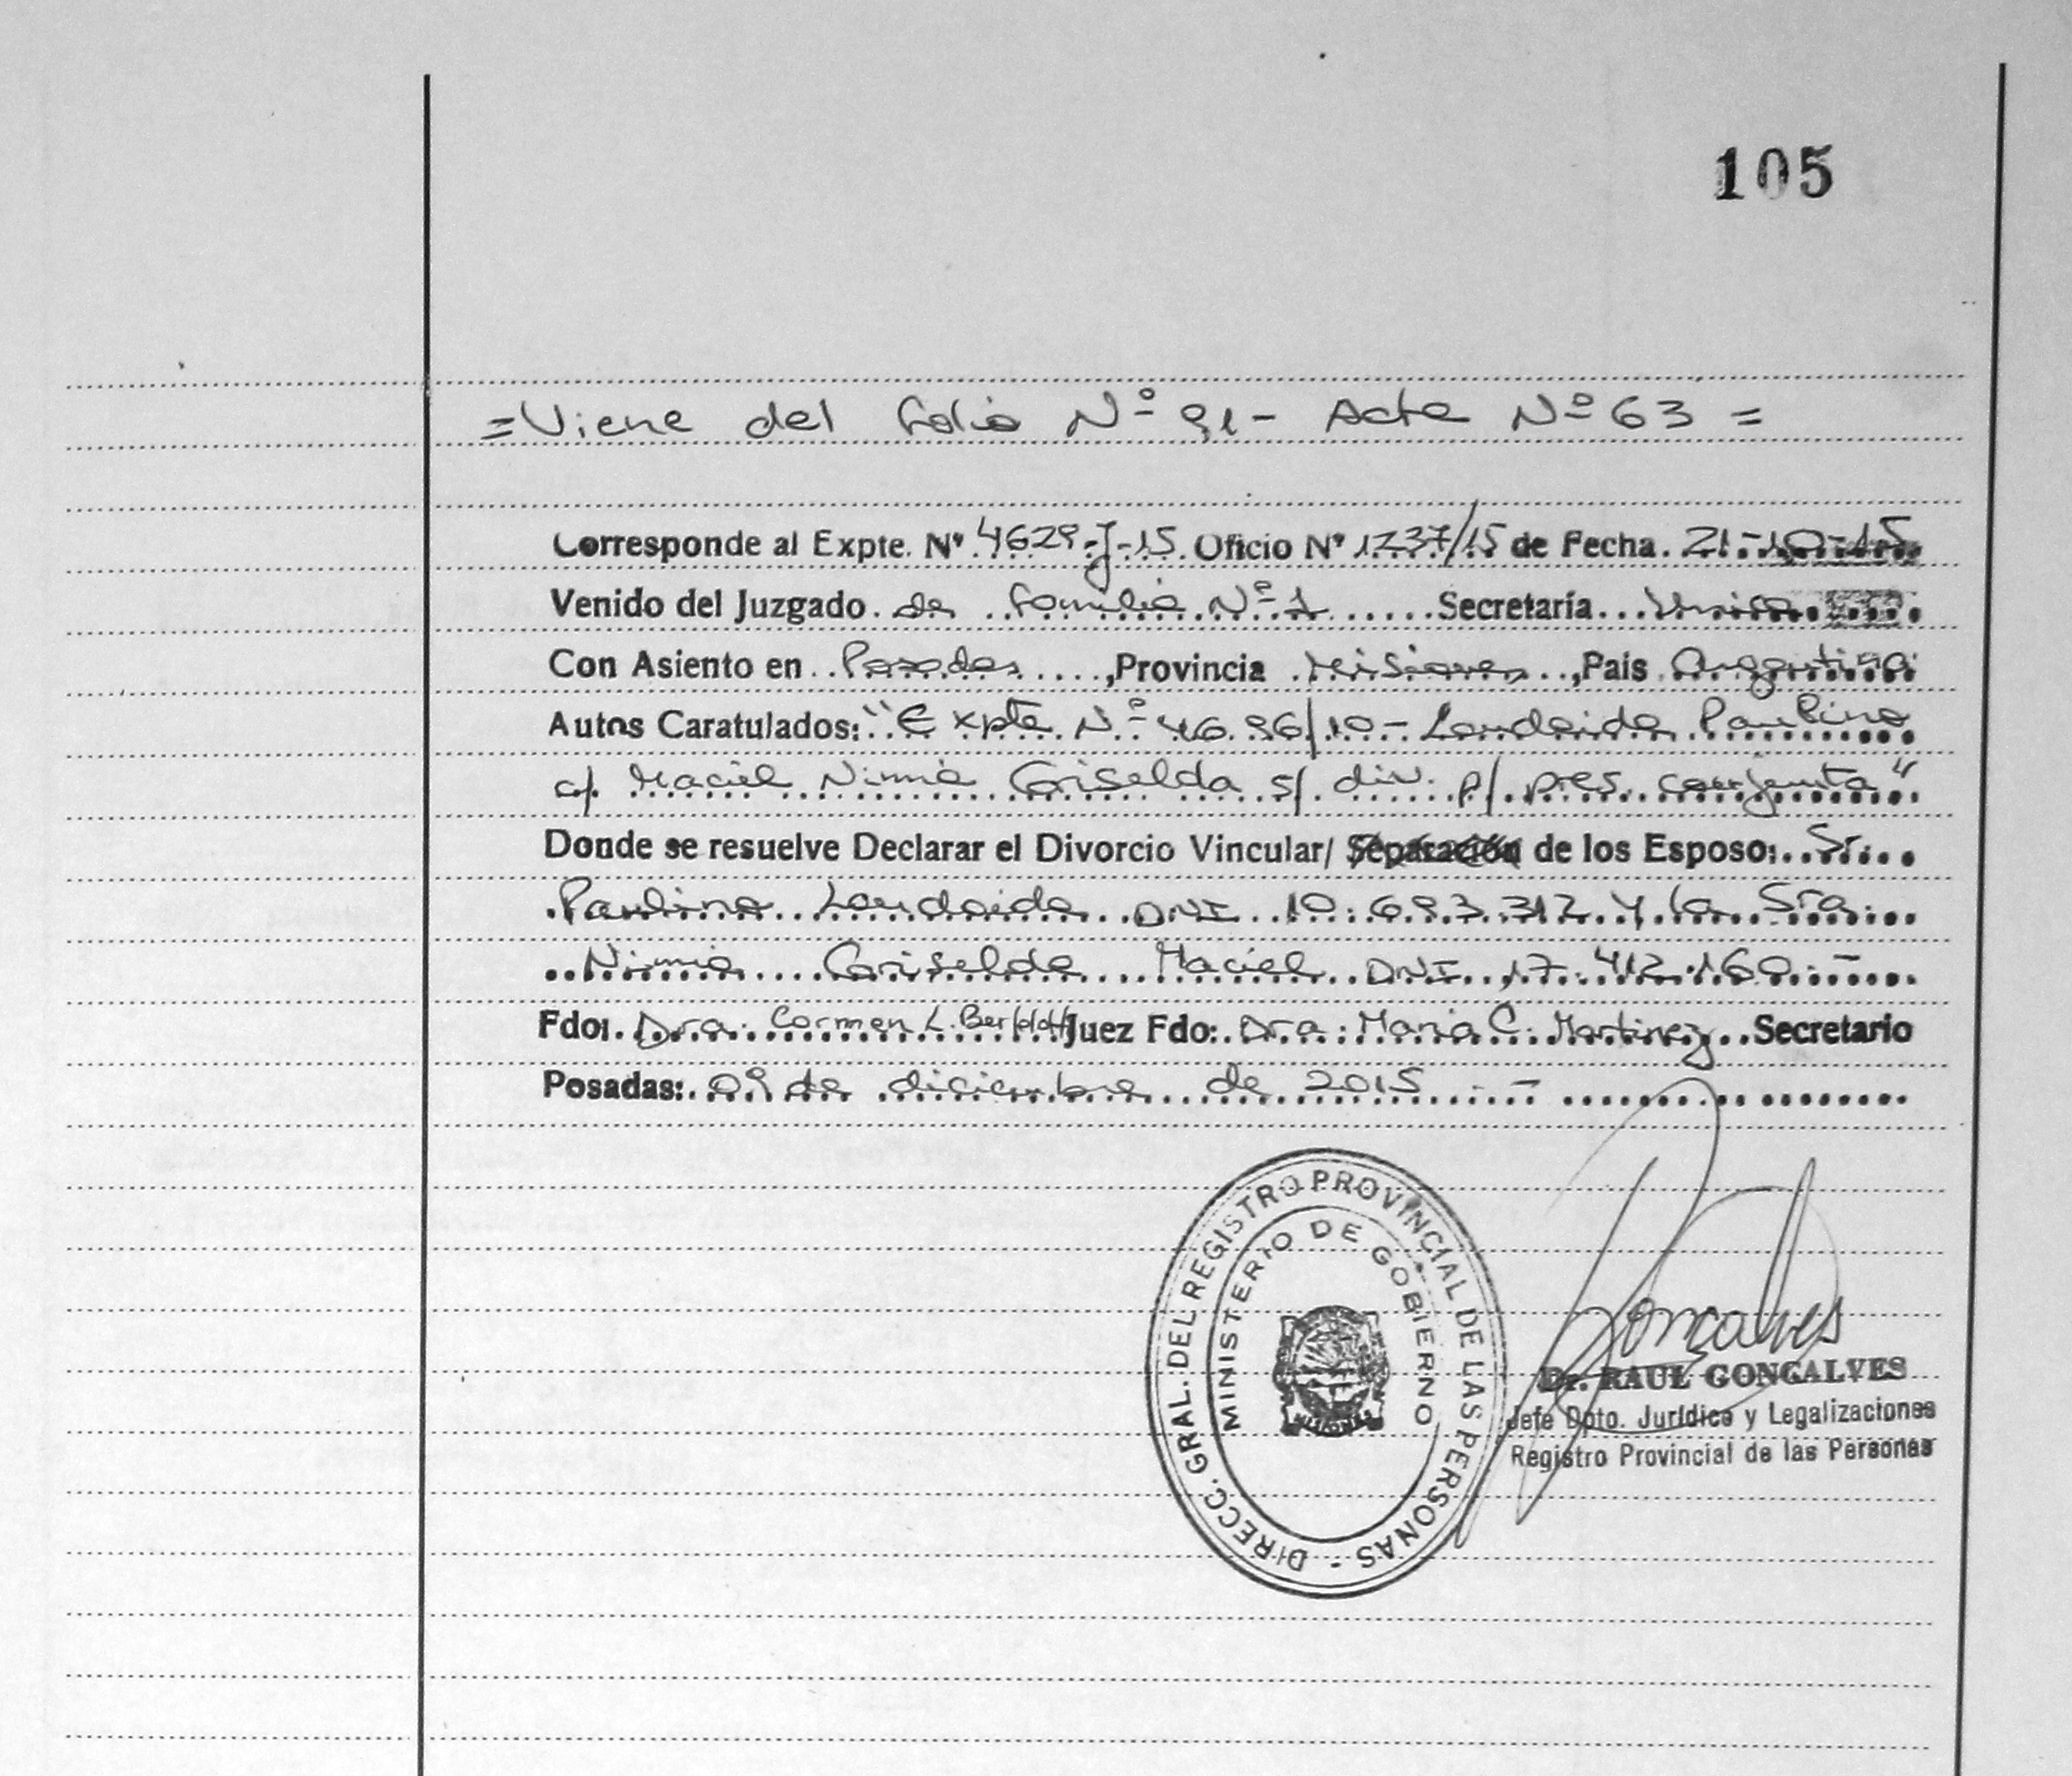 105
=Viene del folio Nº 91- Acta Nº 63 =
Corresponde al Expte. Nº 4629-J-15 Oficio Nº 1237/15 de Fecha. 21-10-15
Venido del Juzgado de familia Nº 1 Secretaría Unica
Con Asiento en Posadas ,Provincia Misiones ,Pais Argentina
Autos Caratulados: "Expte Nº 4696/10- Landaida Paulino
c/ Maciel Nimia Griselda s/ div. p/ pres. conjunta"
Donde se resuelve Declarar el Divorcio Vincular/ Separación de los Esposo: Sr.
Paulino Landaida DNI 10.693.312 y la Sra.
Nimia Griselda Maciel DNI 17.412.160.-
Fdo: Dra. Carmen L. Bertolotti Juez Fdo: Dra. Maria C. Martinez Secretario
Posadas: 09 de diciembre de 2015.-
DIRECC. GRAL. DEL REGISTRO PROVINCIAL DE LAS PERSONAS -
MINISTERIO DE GOBIERNO
MISIONES
Goncalves
Dr. RAUL GONCALVES
Jefe Dpto. Jurídico y Legalizaciones
Registro Provincial de las Personas